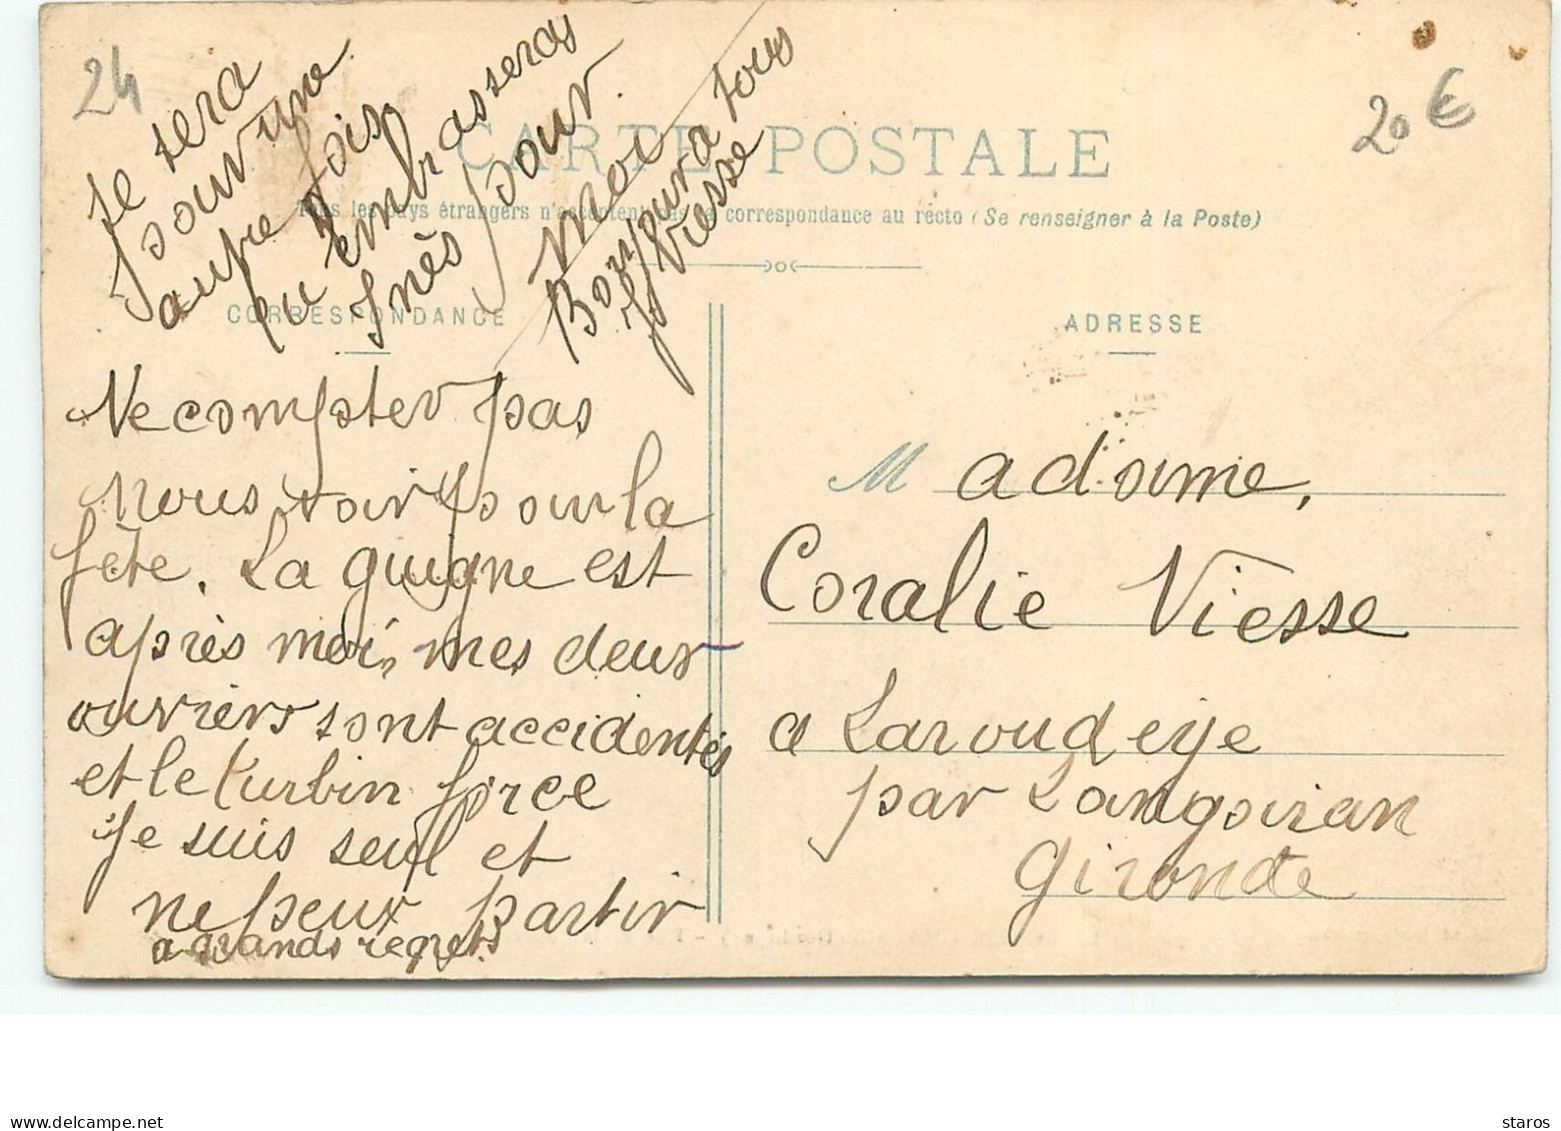 24
20 €
CARTE POSTALE
Tous les pays étrangers n'acceptent pas la correspondance au recto (Se renseigner à la Poste)
CORRESPONDANCE
ADRESSE
Ne compter pas
nous voir pour la
fête. La guigne est
après moi, mes deux
ouvriers sont accidentés
et le turbin force
je suis seul et
ne peux partir
a grands regrets
se sera
pour une
autre fois
tu embrasseras
Inès pour
moi
Bonjour a tous
JViesse
Madame,
Coralie Viesse
a Laroudeye
par Langoiran
Gironde
delcampe.net
staros